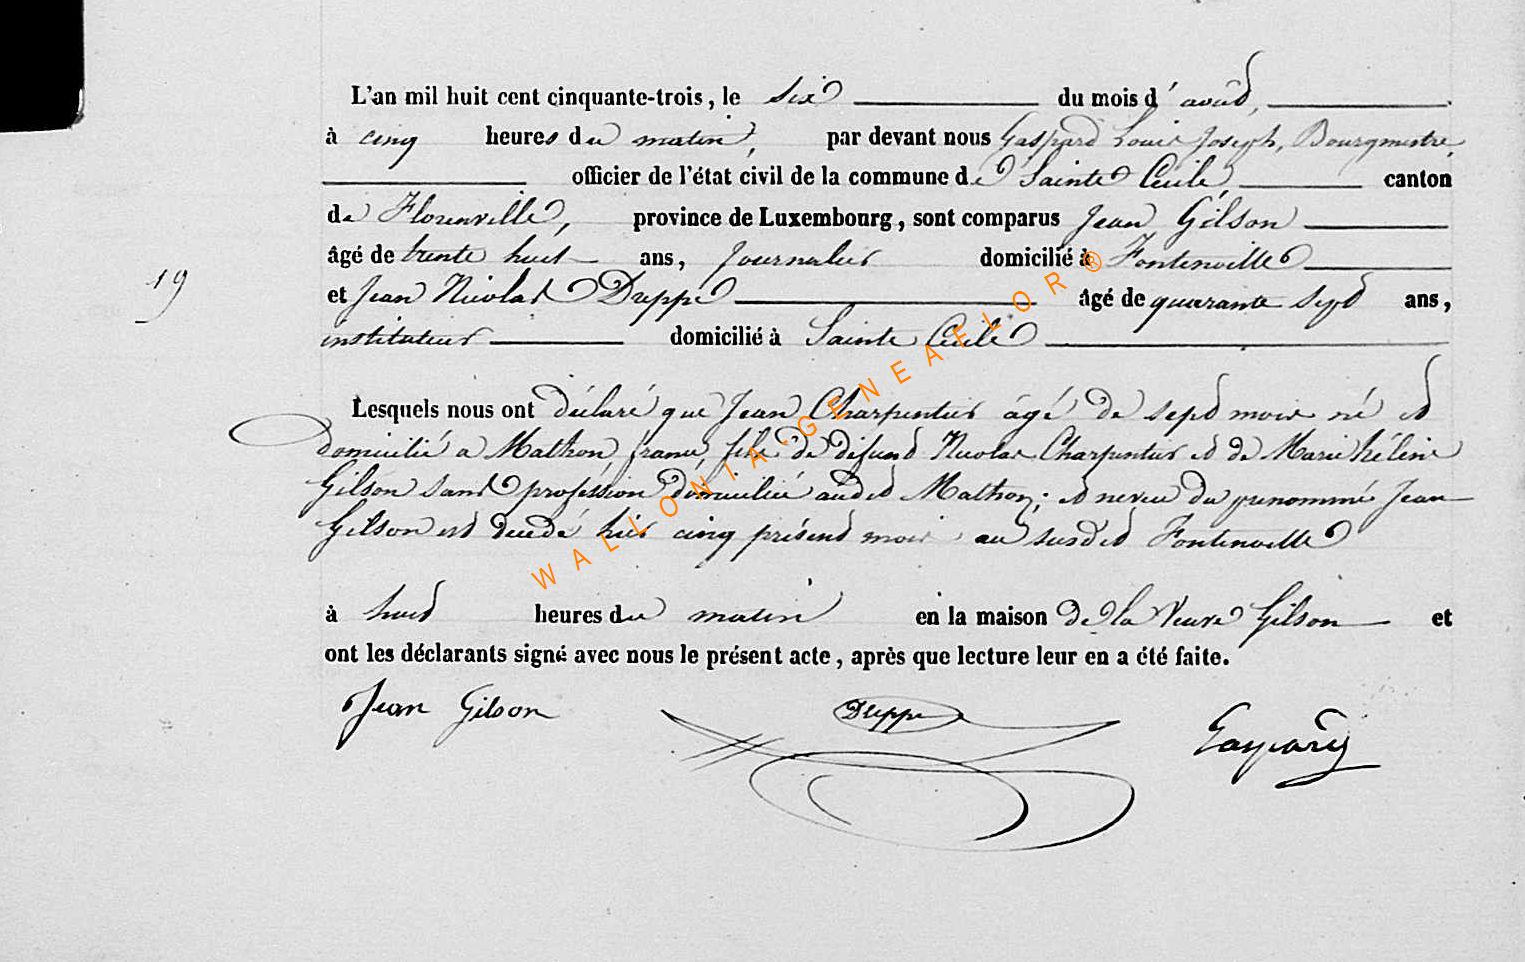 L'an mil huit cent cinquante-trois, le six du mois d'août,
à cinq heures du matin, par devant nous Gaspard Louis Joseph, Bourgmestre,
officier de l'état civil de la commune de Sainte Cécile, canton
de Florenville, province de Luxembourg, sont comparus Jean Gilson
âgé de trente huit ans, journalier domicilié à Fontenoille
19
et Jean Nicolas Dreppe âgé de quarante sept ans,
instituteur domicilié à Sainte Cécile
Lesquels nous ont déclaré que Jean Charpentier âgé de sept mois né et
domicilié a Mathon france, fils de défunt Nicolas Charpentier et de Marie hélène
Gilson sans profession domiciliée audit Mathon; et neveu du prénommé Jean
Gilson est décédé hier cinq présent mois au susdit Fontenoille
à huit heures du matin en la maison de la Veuve Gilson et
ont les déclarants signé avec nous le présent acte, après que lecture leur en a été faite.
Jean Gilson Dreppe Gaspard
WALLONIA-GENEAFLOR®